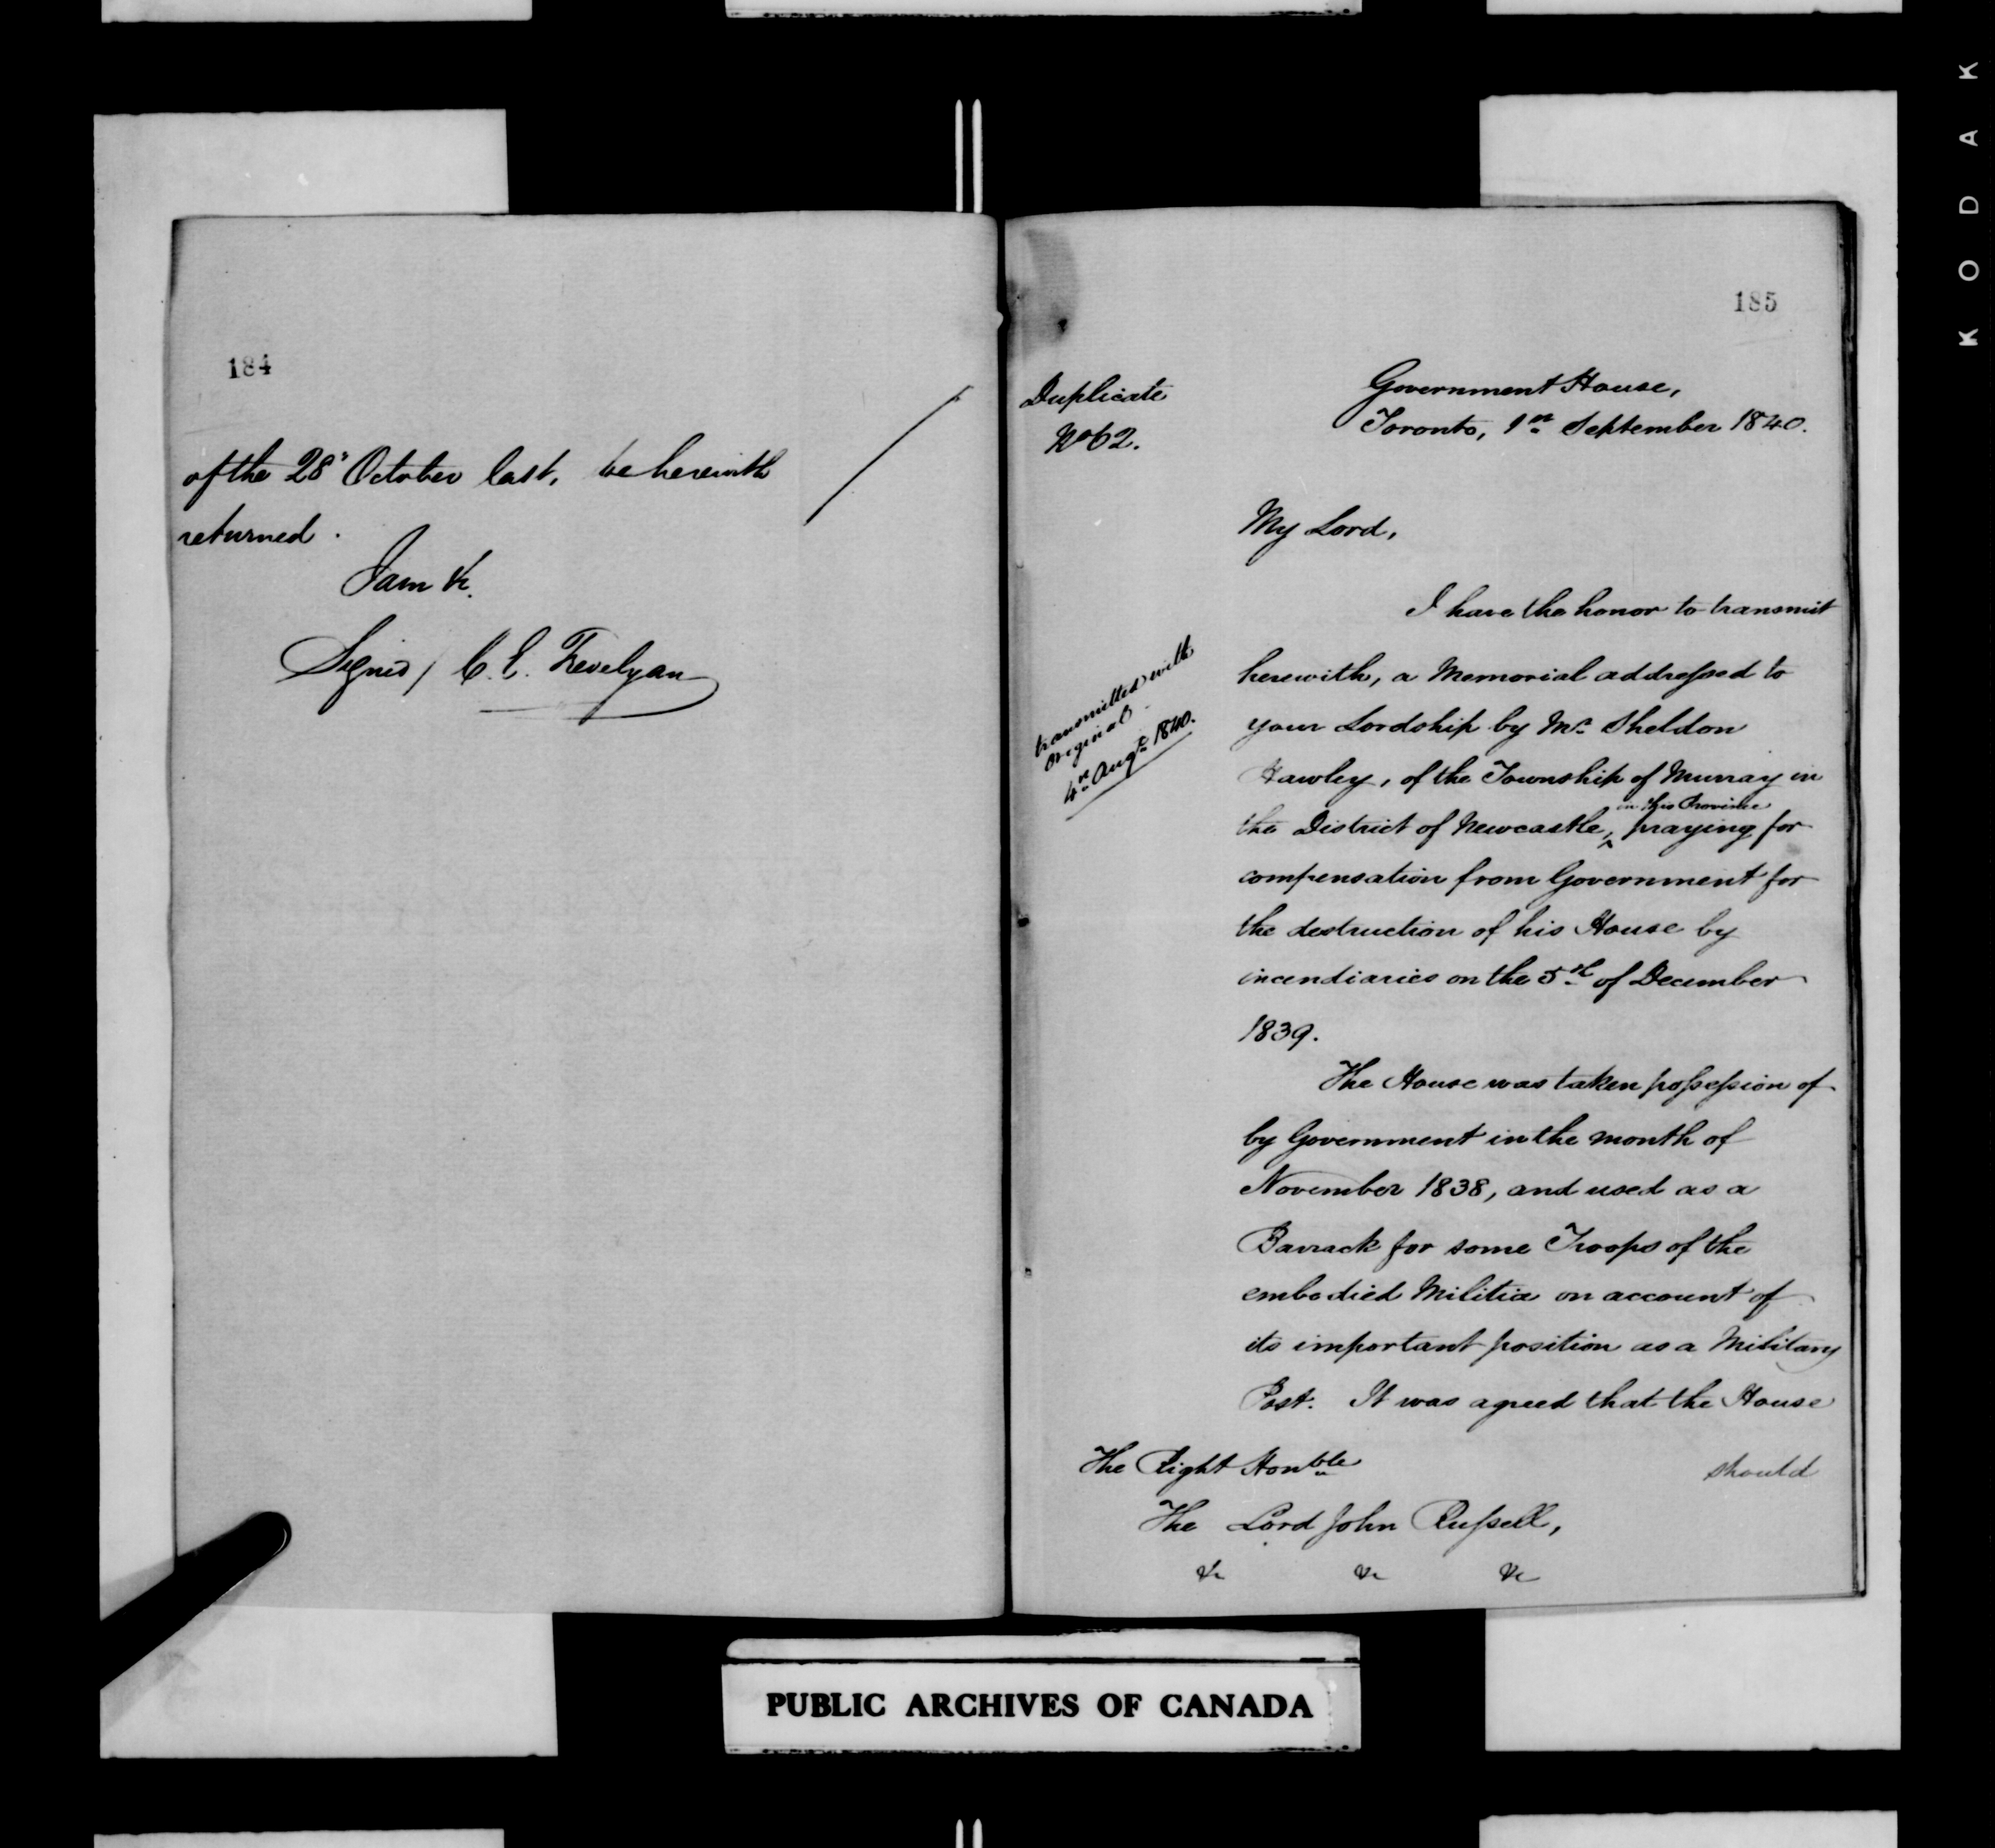 184
of the 28' October last, be herewith
returned.
I am &c.
Signed / C. E. Trevelyan
185
Duplicate
No 62.
Government House,
Toronto, 1st September 1840.
My Lord,
I have the honor to transmit
herewith, a Memorial addressed to
your Lordship by Mr. Sheldon
Hawley, of the Township of Murray in
the District of Newcastle, in this Province praying for
compensation from Government for
the destruction of his House by
incendiaries on the 5th of December
1839.
transmitted with
original
4th Augt 1840.
The House was taken possession of
by Government in the month of
November 1838, and used as a
Barrack for some Troops of the
embodied Militia on account of
its important position as a Military
Post. It was agreed that the House
should
The Right Honble
The Lord John Russell,
&c &c &c
PUBLIC ARCHIVES OF CANADA
KODAK